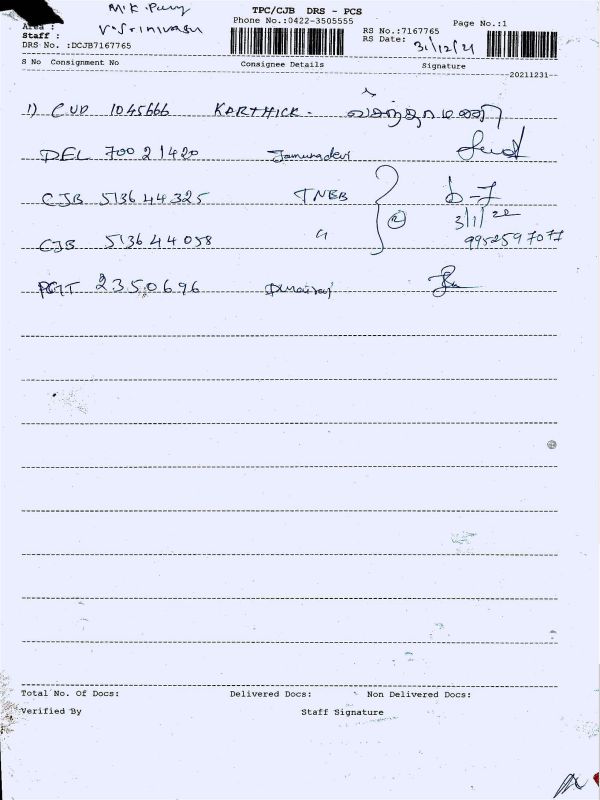 M.K. Pury
TPC/CJB DRS - PCS
Area :
Phone No.:0422-3505555
Page No.:1
Staff : V. Srinivasu
RS No.:7167765
DRS No. :DCJB7167765
RS Date: 31/12/21
S No Consignment No Consignee Details Signature
20211231
1) CUD 1045666 KARTHICK.
DEL 70021420 Jamunadevi
CJB 513644325 TNEB
3/1/22
CJB 513644058 " 2 9952597071
PGT 2350696
Total No. Of Docs: Delivered Docs: Non Delivered Docs:
Verified By Staff Signature